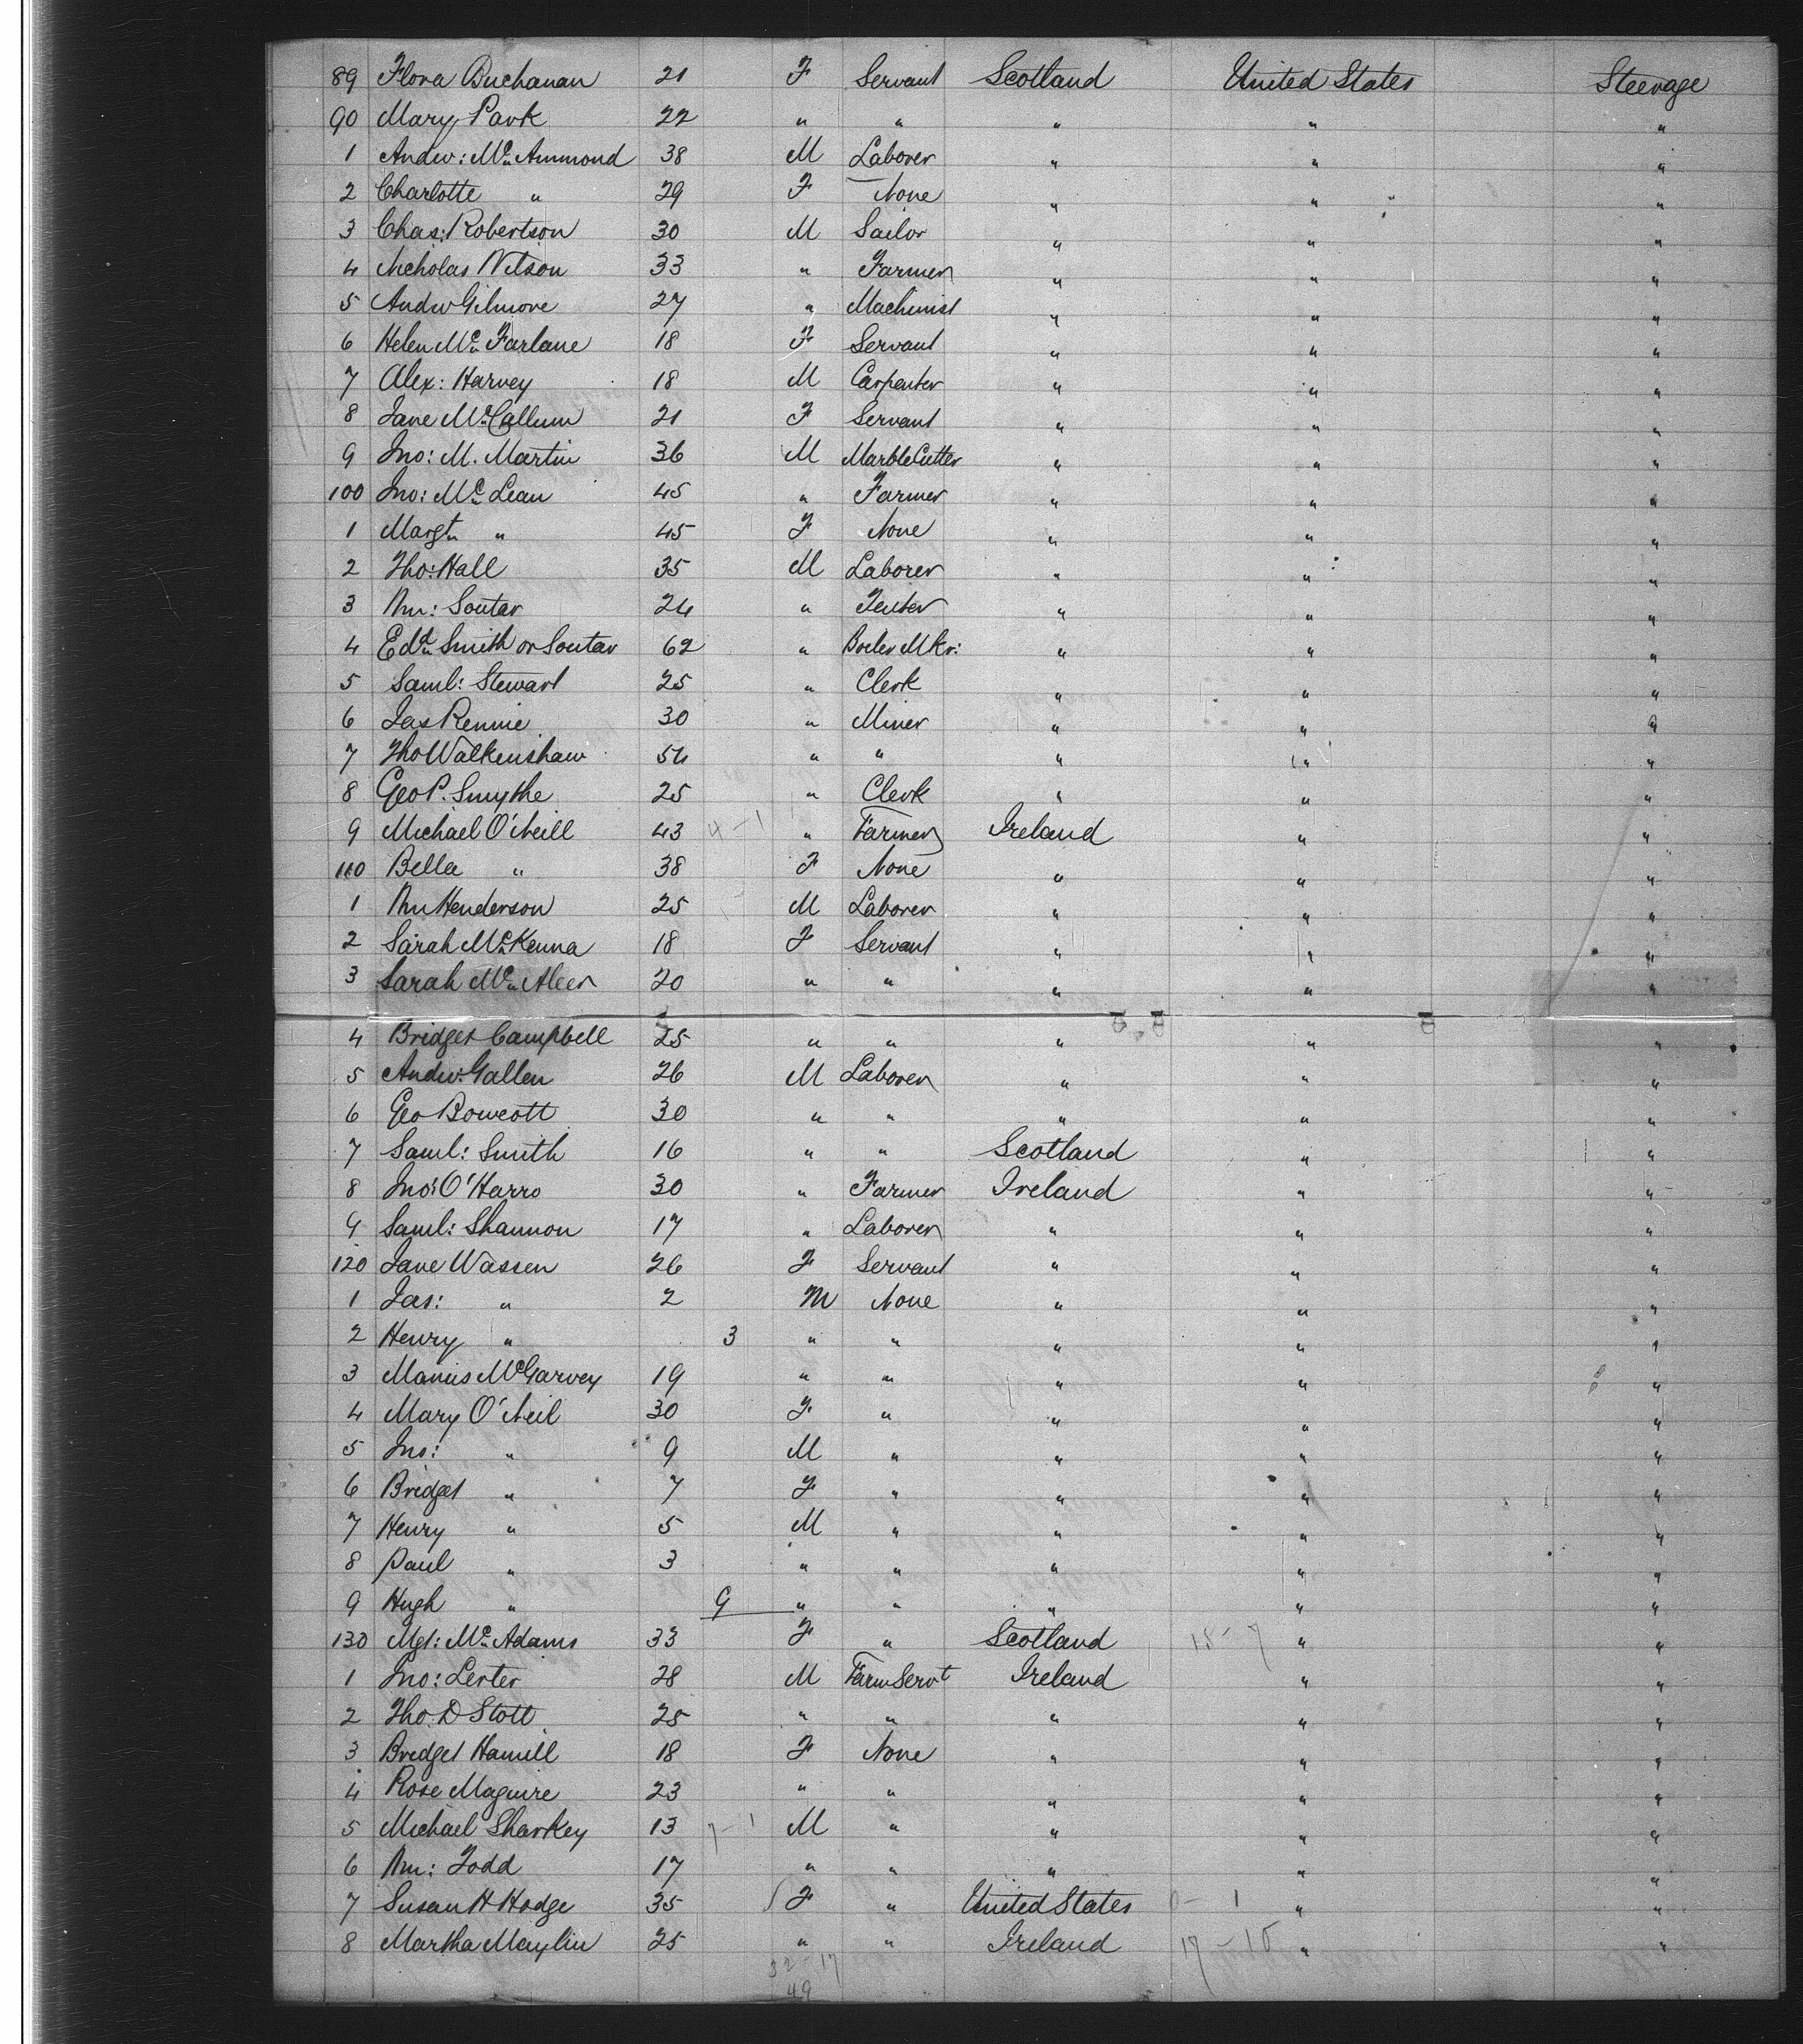 89 Flora Buchanan 21 F Servant Scotland United States Steerage
90 Mary Park 22 " " " " "
1 Andw: Mc Ammond 38 M Laborer " " "
2 Charlotte " 29 F None " " "
3 Chas: Robertson 30 M Sailor " " "
4 Nicholas Nilson 33 " Farmer " " "
5 Andw Gilmore 27 " Machinist " " "
6 Helen Mc Farlane 18 F Servant " " "
7 Alex: Harvey 18 M Carpenter " " "
8 Jane McCallum 21 F Servant " " "
9 Jno: M. Martin 36 M Marble Cutter " " "
100 Jno: Mc Lean 45 " Farmer " " "
1 Margt " 45 F None " " "
2 Tho: Hall 35 M Laborer " " "
3 Wm: Soutar 24 " Tenter " " "
4 Edd Smith or Soutar 62 " Boiler Mkr: " " "
5 Saml: Stewart 25 " Clerk " " "
6 Jas Rennie 30 " Miner " " "
7 Tho Walkenshaw 54 " " " " "
8 Geo P. Smythe 25 " Clerk " " "
9 Michael O'Neill 43 4-1 " Farmer Ireland " "
110 Bella " 38 F None " " "
1 Wm Henderson 25 M Laborer " " "
2 Sarah McKenna 18 F Servant " " "
3 Sarah Mc Aleer 20 " " " " "
4 Bridget Campbell 25 " " " " "
5 Andw: Gallen 26 M Laborer " " "
6 Geo Bowcott 30 " " " " "
7 Saml: Smith 16 " " Scotland " "
8 Jno: O'Harro 30 " Farmer Ireland " "
9 Saml: Shannon 17 " Laborer " " "
120 Jane Wassen 26 F Servant " " "
1 Jas: " 2 M None " " "
2 Henry " 3 " " " " "
3 Manus McGarvey 19 " " " " "
4 Mary O'Neil 30 F " " " "
5 Jno: " 9 M " " " "
6 Bridget " 7 F " " " "
7 Henry " 5 M " " " "
8 Paul " 3 " " " " "
9 Hugh " 9 " " " " "
130 Mgt: Mc Adams 33 F " Scotland 18-7 " "
1 Jno: Lester 28 M Farm Servt Ireland " "
2 Tho: D Stott 28 " " " " "
3 Bridget Hamill 18 F None " " "
4 Rose Maguire 23 " " " " "
5 Michael Sharkey 13 7-1 M " " " "
6 Wm: Todd 17 " " " " "
7 Susan H Hodge 35 F " United States 0-1 " "
8 Martha Maylin 25 " " Ireland 17-15 " "
32-17
49